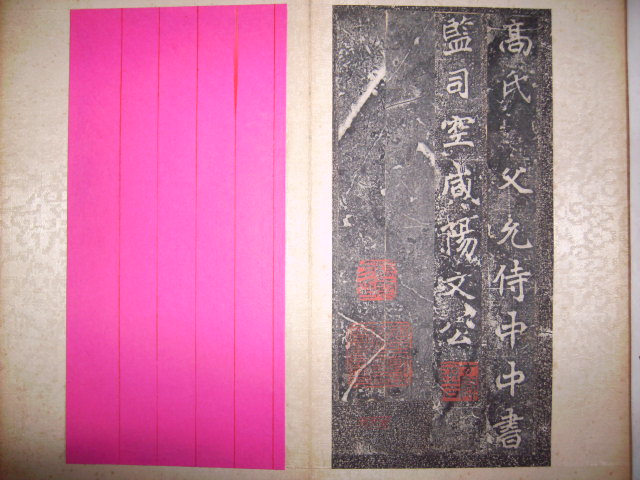 高氏 父允侍中中書
監司空咸陽文公